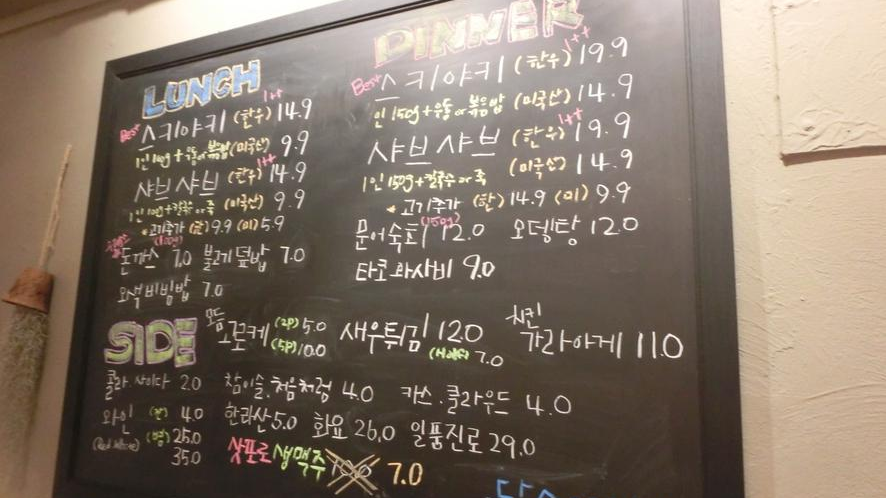 LUNCH
Best 스키야키 (한우) 1++ 14.9
1인 100g + 우동 or 볶음밥 (미국산) 9.9
샤브샤브 (한우) 1++ 14.9
1인 100g + 칼국수 or 죽 (미국산) 9.9
* 고기추가 (한) 9.9 (미) 5.9
(100g)
돈까스 7.0 불고기 덮밥 7.0
오색비빔밥 7.0
DINNER
Best 스키야키 (한우) 1++ 19.9
1인 150g + 우동 or 볶음밥 (미국산) 14.9
샤브샤브 (한우) 1++ 19.9
1인 150g + 칼국수 or 죽 (미국산) 14.9
* 고기추가 (한) 14.9 (미) 9.9
(150g)
문어숙회 12.0 오뎅탕 12.0
타코와사비 9.0
SIDE
모듬 고로케 (2P) 5.0 새우튀김 12.0 치킨 가라아게 11.0
(5P) 10.0 (Half) 7.0
콜라.사이다 2.0 참이슬.처음처럼 4.0 카스.클라우드 4.0
와인 (잔) 4.0 한라산 5.0 화요 26.0 일품진로 29.0
(Red, White) (병) 25.0
35.0
삿포로 생맥주 7.0